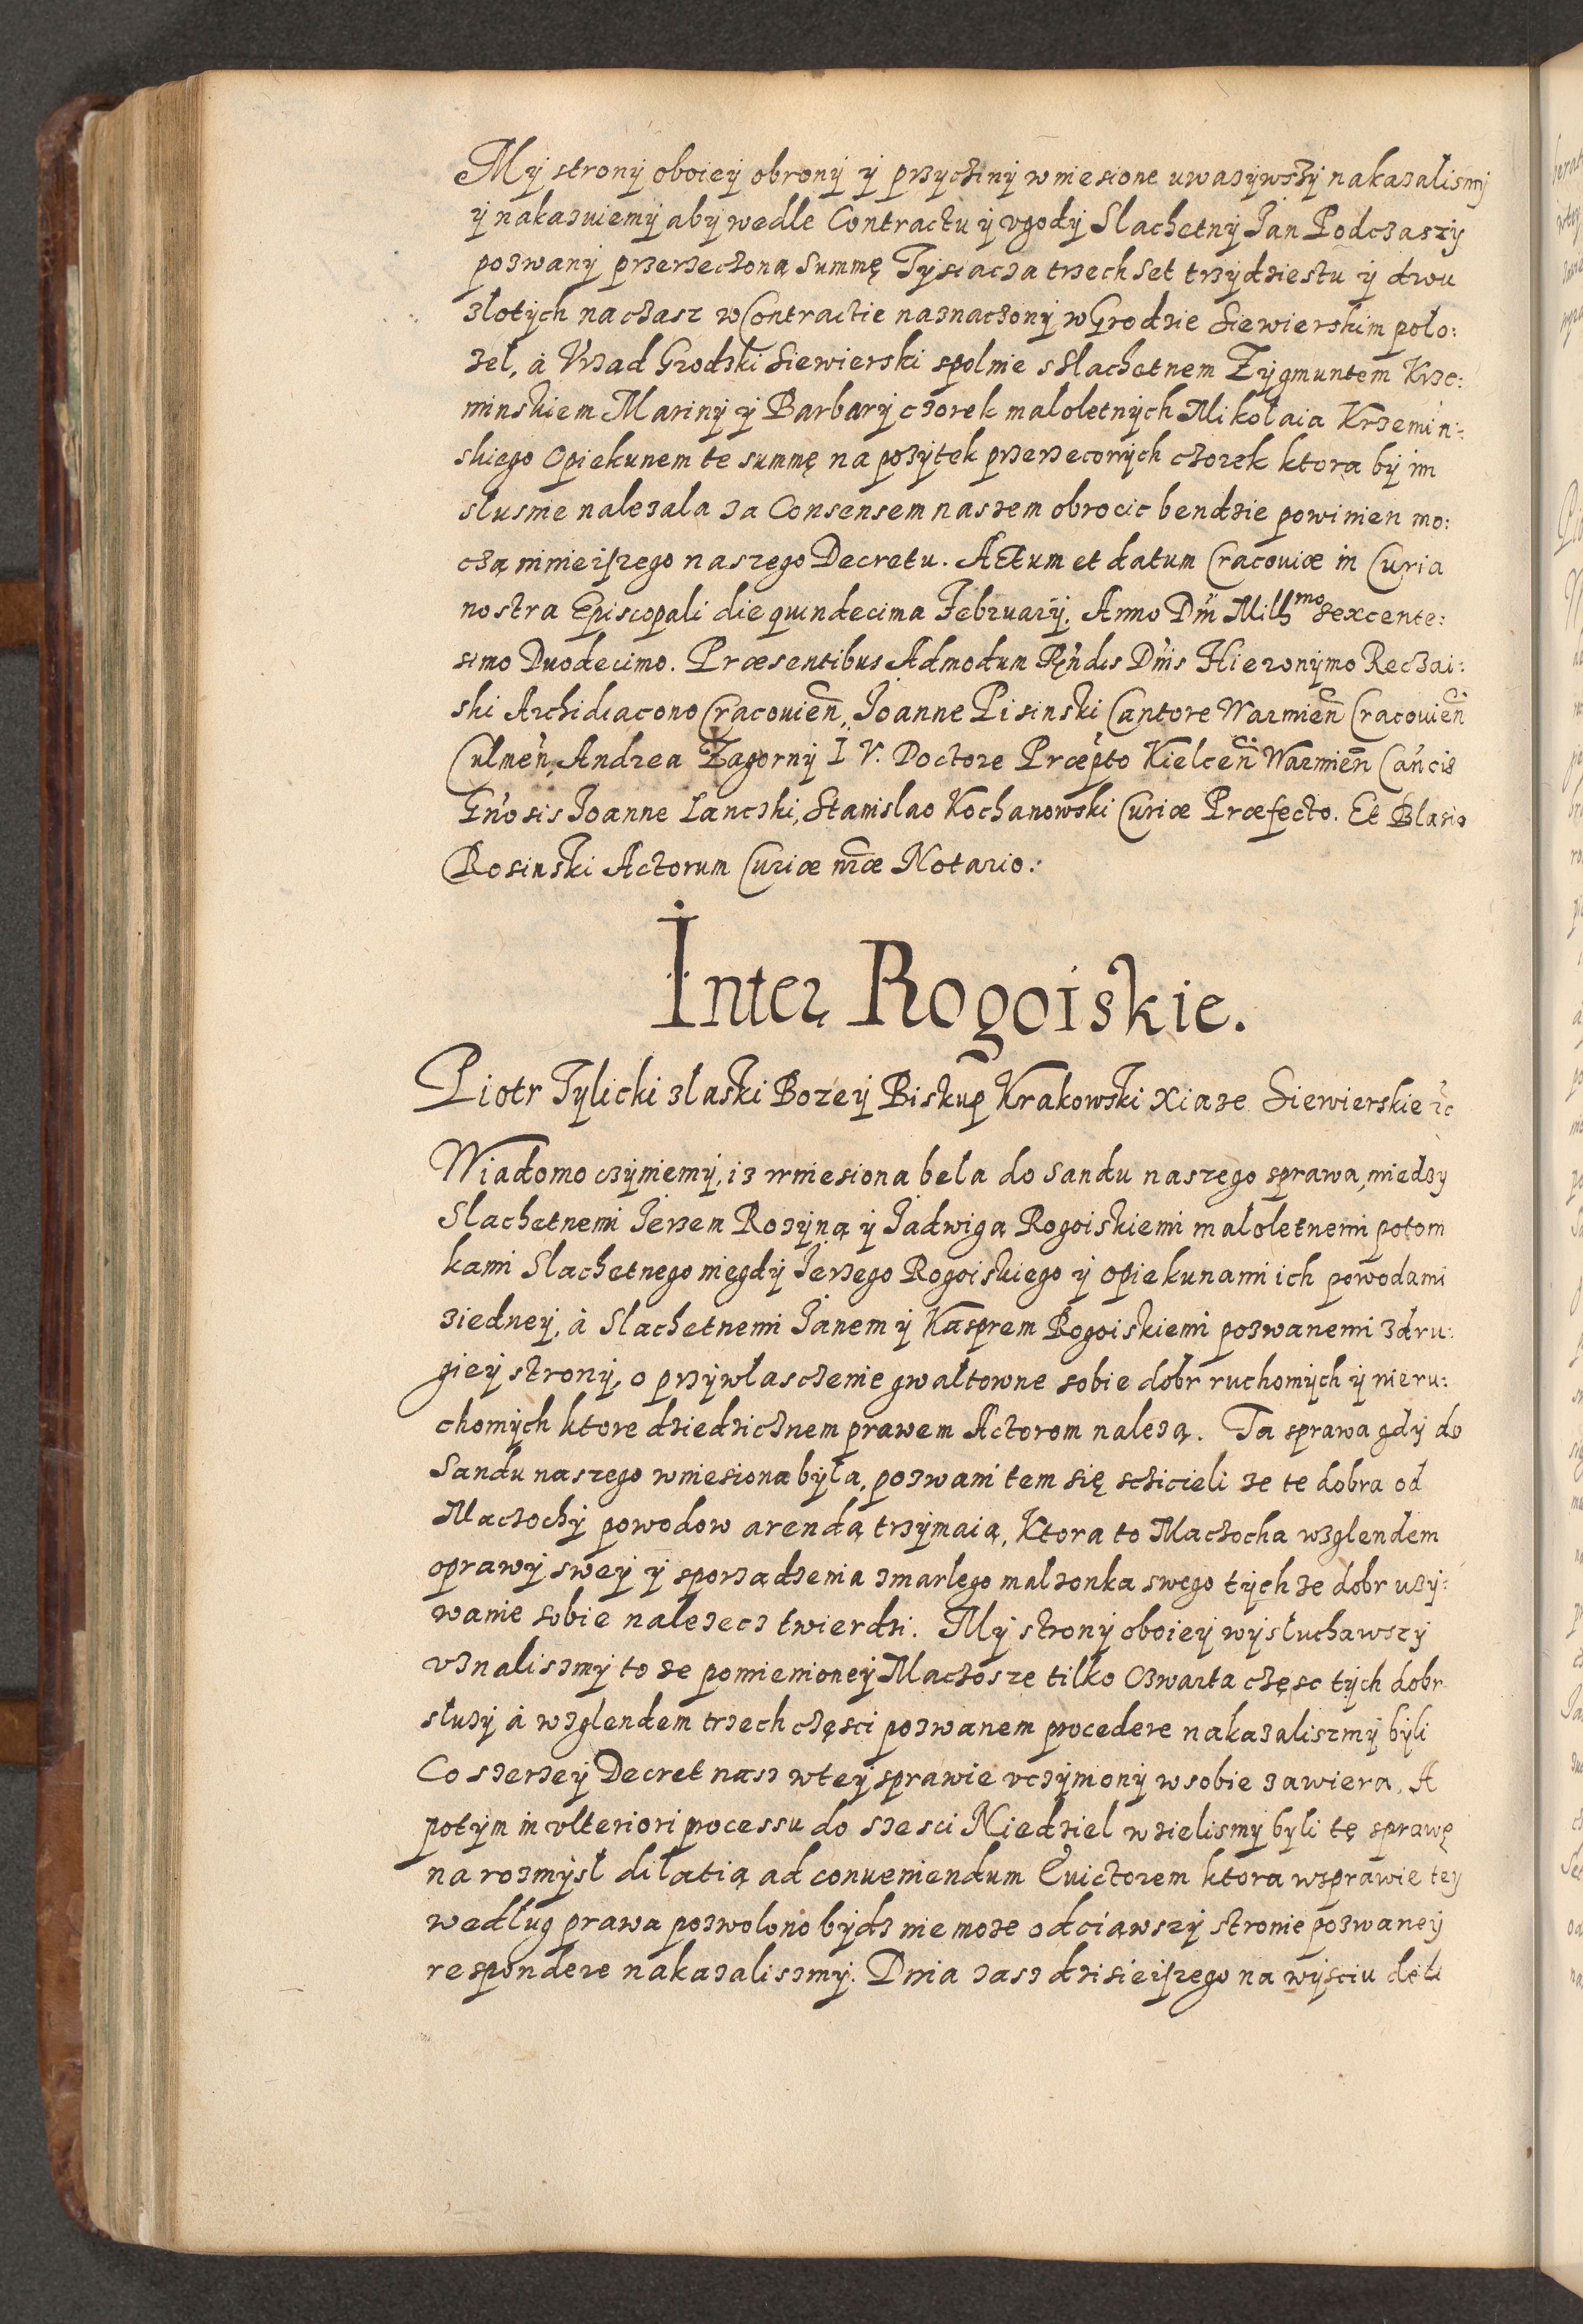 My strony oboiey obrony y przyczyny wniesione uwazywszy nakazalismy
y nakazuiemy aby wedle Contractu y vgody Slachetny Jan Podczaszy
pozwany przerzeczoną Summę Tysiacza trzech set trzydziestu y dwu
złotych na czasz w Contractie naznaczony w Grodzie Siewierskim poło:
zeł, à Vrząd Grodzki Siewierski spolnie s Slachetnem Zygmuntem Krze:
minskiem Mariny y Barbary czorek małoletnych Mikołaia Krzemin:
skiego Opiekunem te summę na pozytek przerzeconych czorek ktora by im
słusnie nalezala za Consensem naszem obrocic bendzie powinien mo:
czą ninieiszego naszego Decretu. Actum et datum Cracouiæ in Curia
nostra Episcopali die quindecima February. Anno Dnī Mill^mo sexcente:
simo Duodecimo. Præsentibus Admodum Rndis Dnis Hieronymo Reczai:
ski Archidiacono Cracouien, Joanne Pisinski Cantore Warmien Cracouien
Culmen, Andrea Zagorny I V. Doctore Præpto Kielcen Warmien Cancis
Gnosis Joanne Lancski, Stanislao Kochanowski Curiæ Præfecto. Et Blasio
Rosinski Actorum Curiæ nræ Notario.
Inter Rogoiskie.
Piotr Tylicki z łaski Bozey Biskup Krakowski Xiaze Siewierskie &c
Wiadomo czyniemy, iz wniesiona bela do Sandu naszego sprawa, miedzy
Slachetnemi Jerzem Rozyną y Jadwigą Rogoiskiemi maloletnemi potom
kami Slachetnego niegdy Jerzego Rogoiskiego y opiekunami ich powodami
ziedney, à Slachetnemi Janem y Kasprem Rogoiskiemi pozwanemi zdru:
giey strony, o przywłasczenie gwałtowne sobie dobr ruchomych y nieru:
chomych ktore dziedzicznem prawem Actorom nalezą. Ta sprawa gdy do
Sandu naszego wniesiona była, pozwani tem się sczicieli ze te dobra od
Maczochy powodow arendą trzymaią, Ktora to Maczocha wzglendem
oprawy swey y sporządzenia zmarlego malzonka swego tych ze dobr uzy:
wanie sobie nalezecz twierdzi. My strony oboiey wysłuchawszy
vznalismy to ze pomienioney Maczosze tilko Czwarta częsc tych dobr
służy à wzglendem trzech częsci pozwanem procedere nakazaliszmy byli
Co szerzey Decret nasz w tey sprawie vczyniony w sobie zawiera. A
potym in vlteriori processu do szesci Niedziel wzielismy byli tę sprawę
na rozmysł dilatią ad conueniendum Euictorem ktora wsprawie tey
według prawa pozwolono bydz nie moze odciąwszy stronie pozwaney
respondere nakazalismy. Dnia zasz dzisieiszego na wysciu deli